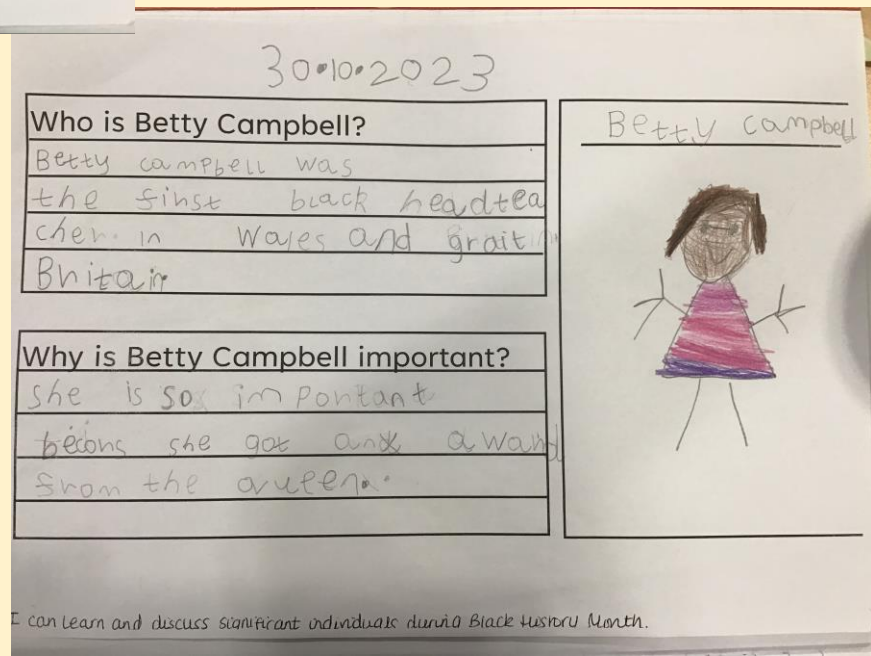 30.10.2023
Who is Betty Campbell?
Betty campbell was
the first black headtea
cher in Wales and grait
Britain
Why is Betty Campbell important?
she is so important
becons she got an award
from the queen.
Betty campbell
I can learn and discuss significant individuals during Black History Month.